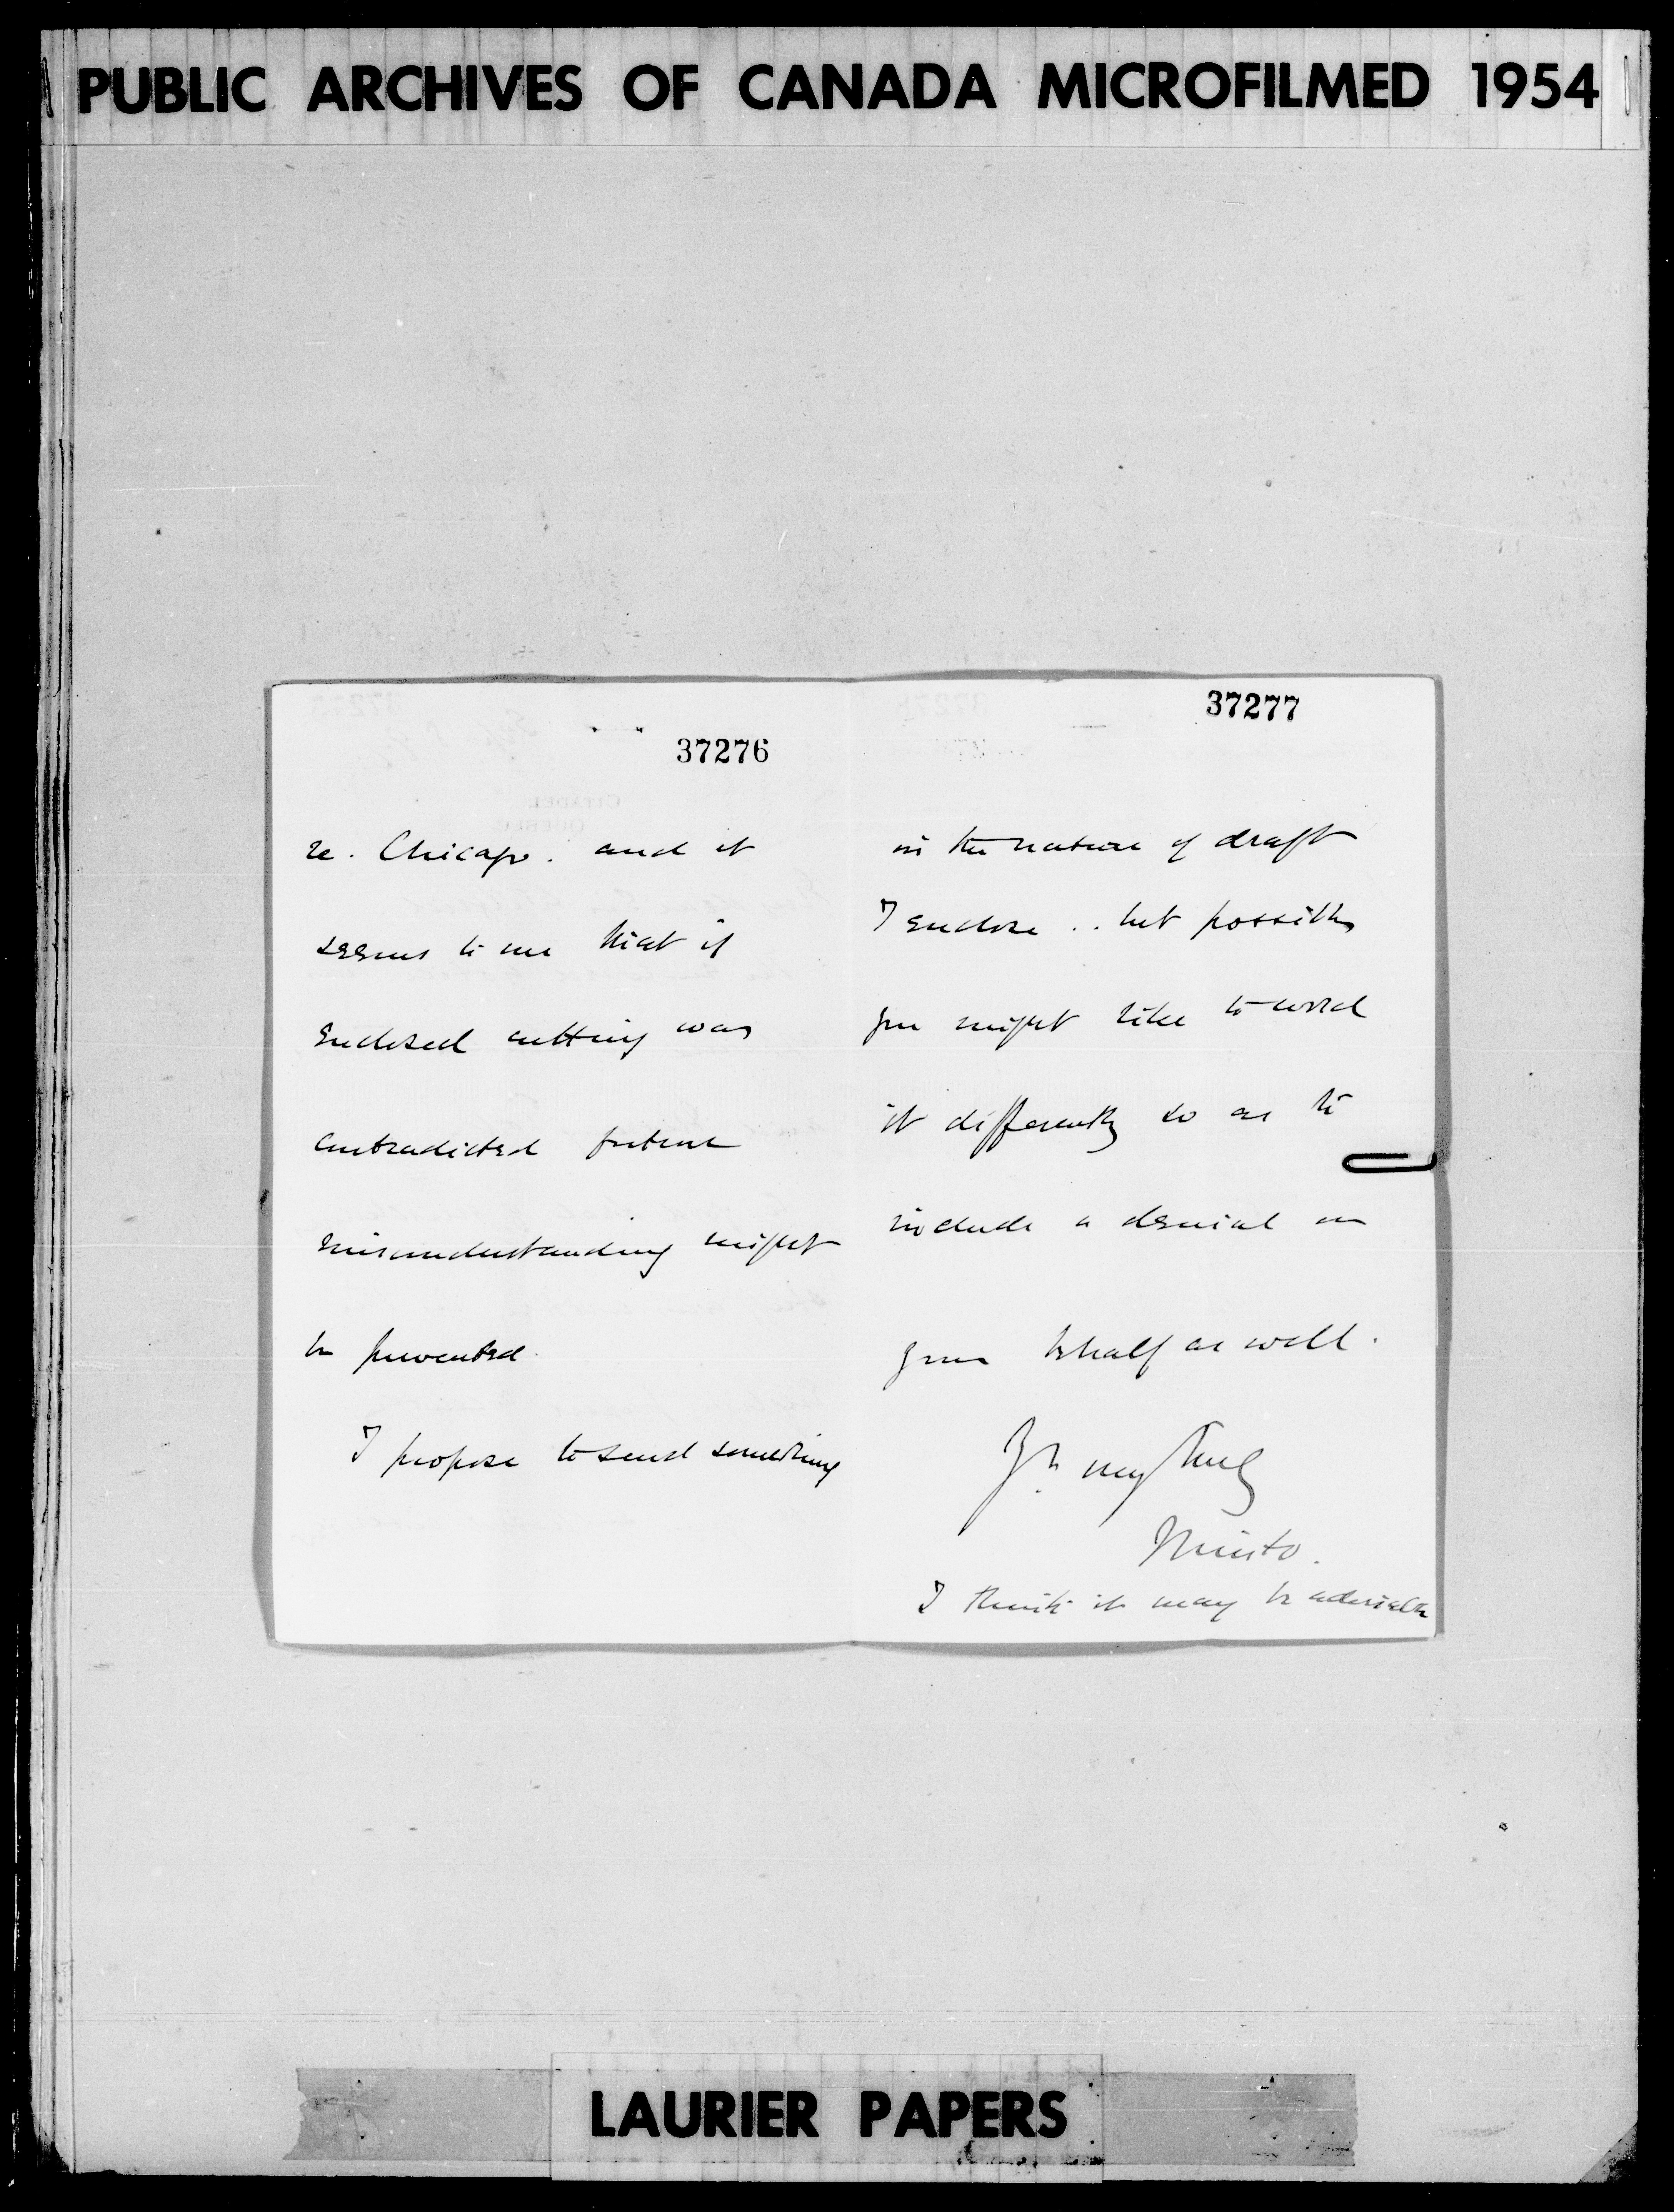 PUBLIC ARCHIVES OF CANADA MICROFILMED 1954
37276
re. Chicago. and it
seems to me that if
enclosed cutting was
contradicted future
misunderstanding might
be prevented.
I propose to send something
37277
in the nature of draft
I enclose .. but possibly
you might like to word
it differently so as to
include a denial on
your behalf as well.
Yrs very truly
Minto.
I think it may be advisable
LAURIER PAPERS